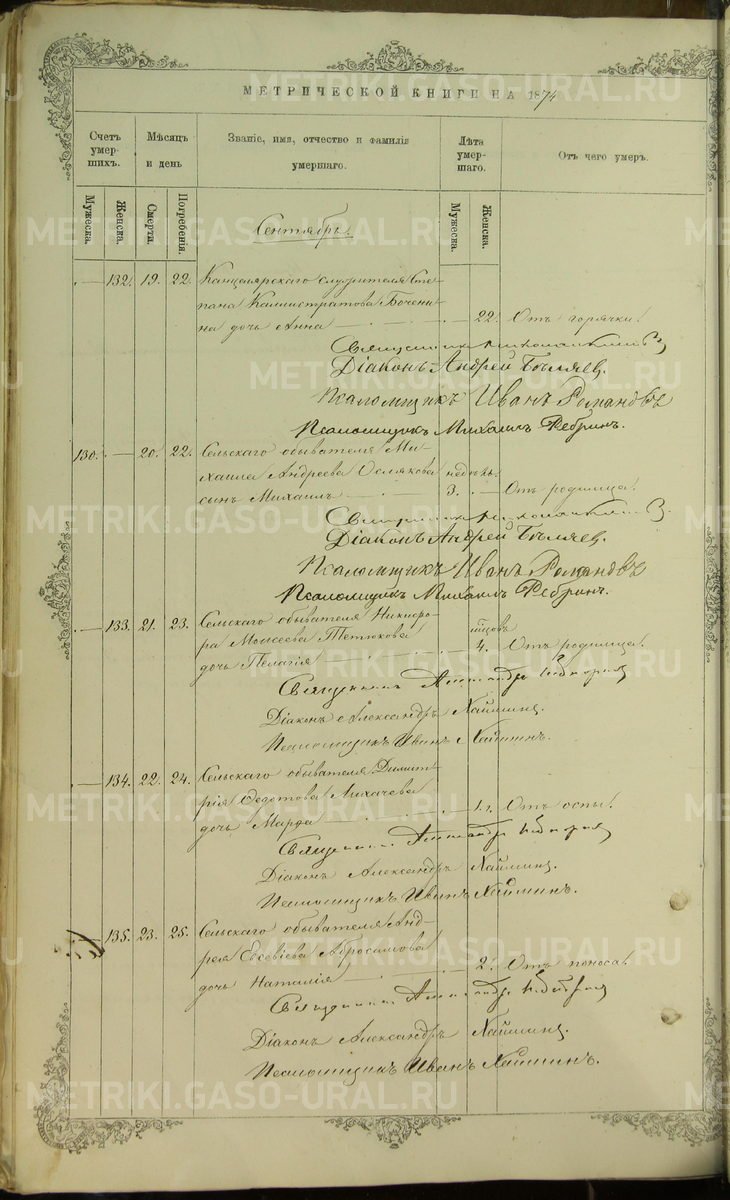 МЕТРИЧЕСКОЙ КНИГИ НА 1874
Счетъ умер-шихъ.
Мѣсяцъ и день
Званіе, имя, отчество и фамилія умершаго.
Лѣта умер-шаго.
Отъ чего умеръ.
Мужеска.
Женска.
Смерти.
Погребенія.
Мужеска.
Женска.
Сентябрь
— 132. 19. 22. Канцелярскаго служителя Сте-
пана Каллистратова Бочени-
на дочь Анна 22. Отъ горячки.
Священникъ
Діаконъ Андрей Бѣляев.
Псаломщикъ Иванъ Романовъ
Псаломщикъ Михаилъ Ребринъ.
130. — 20. 22. Сельскаго обывателя Ми-
хаила Андреева Ослякова недѣль
сынъ Михаилъ 3. — Отъ родимца.
Священникъ
Діаконъ Андрей Бѣляев.
Псаломщикъ Иванъ Романовъ
Псаломщикъ Михаилъ Ребринъ.
— 133. 21. 23. Сельскаго обывателя Никифо-
ра Моисеева Тетюкова
дочь Пелагія 4. Отъ родимца.
Священникъ Александръ
Діаконъ Александръ Хайминъ.
Псаломщикъ Иванъ Хайминъ.
— 134. 22. 24. Сельскаго обывателя Димит-
рія Федотова Лихачева
дочь Марфа 1 г. Отъ оспы.
Священникъ Александръ
Діаконъ Александръ Хайминъ.
Псаломщикъ Иванъ Хайминъ.
— 135. 23. 25. Сельскаго обывателя Анд-
рея Евсевіева Абросимова
дочь Наталія 2. Отъ поноса.
Священникъ Александръ
Діаконъ Александръ Хайминъ.
Псаломщикъ Иванъ Хайминъ.
METRIKI.GASO-URAL.RU
METRIKI.GASO-URAL.RU
METRIKI.GASO-URAL.RU
METRIKI.GASO-URAL.RU
METRIKI.GASO-URAL.RU
METRIKI.GASO-URAL.RU
METRIKI.GASO-URAL.RU
METRIKI.GASO-URAL.RU